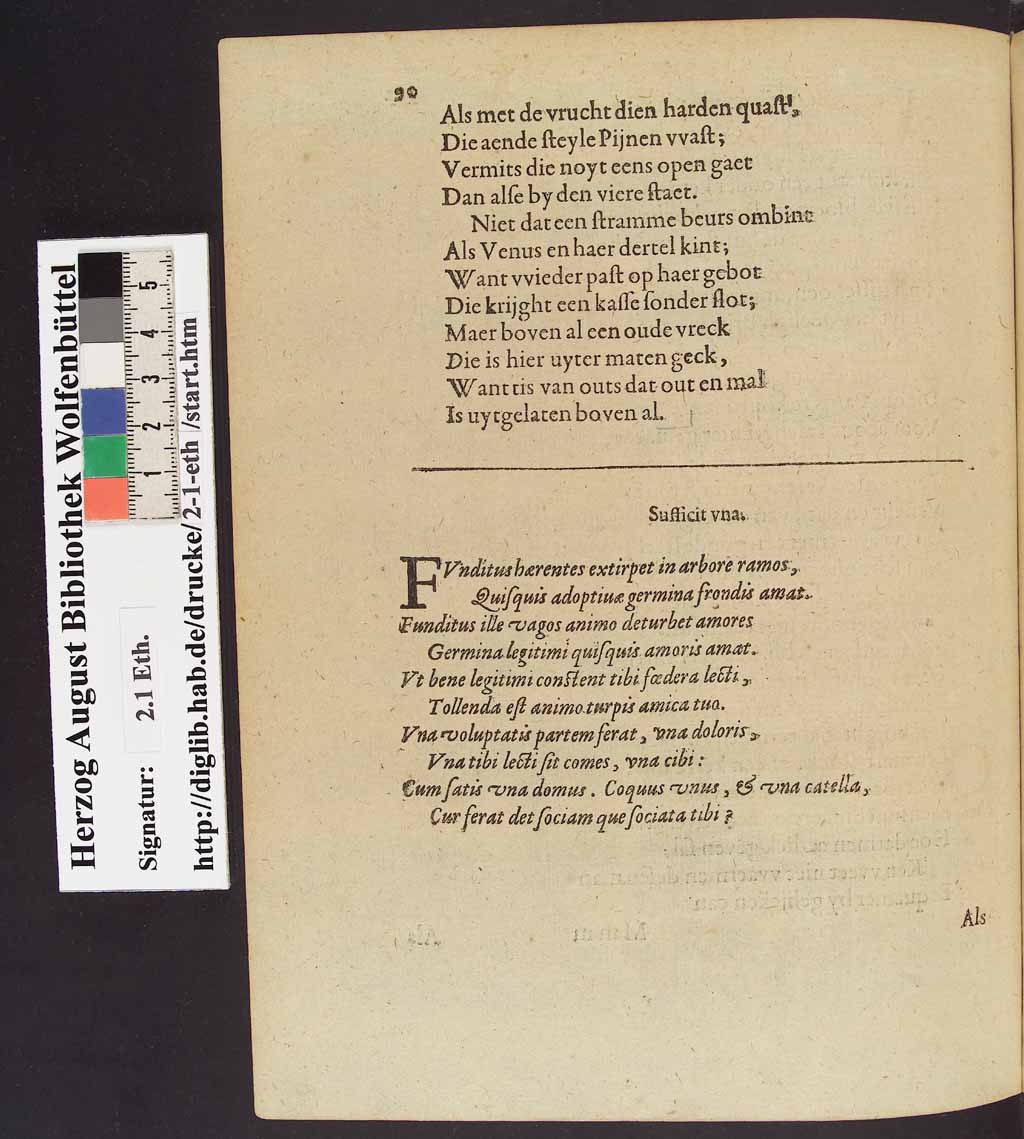 90
Als met de vrucht dien harden quaſt,
Die aende ſteyle Pijnen vvaſt;
Vermits die noyt eens open gaet
Dan alſe by den viere ſtaet.
Niet dat een ſtramme beurs ombint
Als Venus en haer dertel kint;
Want vvieder paſt op haer gebot
Die krijght een kaſſe ſonder ſlot;
Maer boven al een oude vreck
Die is hier uyter maten geck,
Want tis van outs dat out en mal
Is uytgelaten boven al.
Sufficit vna.
FVnditus hærentes extirpet in arbore ramos,
Quiſquis adoptiuæ germina frondis amat.
Funditus ille vagos animo deturbet amores
Germina legitimi quiſquis amoris amat.
Vt bene legitimi conſtent tibi fœdera lecti,
Tollenda eſt animo turpis amica tuo.
Vna voluptatis partem ferat, vna doloris,
Vna tibi lecti ſit comes, vna cibi:
Cum ſatis vna domus. Coquus vnus, & vna catella,
Cur ferat det ſociam que ſociata tibi?
Als
Herzog August Bibliothek Wolfenbüttel
Signatur: 2.1 Eth.
http://diglib.hab.de/drucke/2-1-eth /start.htm
1 2 3 4 5